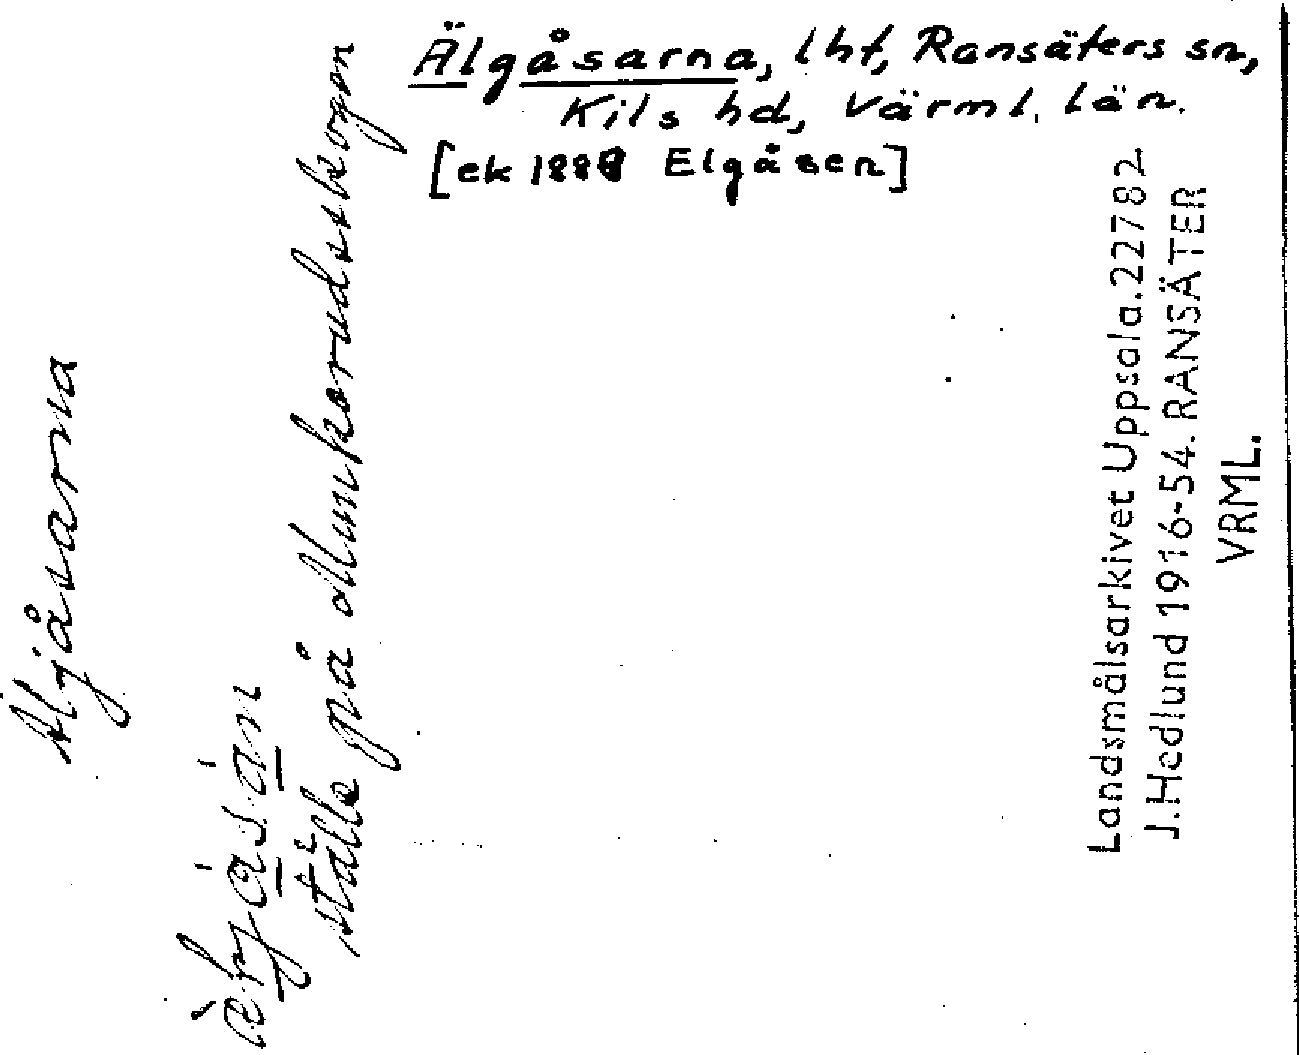 Älgåsarna, lht, Ransäters sn,
Kils hd, Värml. län.
[ek 1888 Elgåsen]
Äljåsarna
ställe på Munkerudsskogen
Landsmålsarkivet Uppsala. 22782
J. Hedlund 1916-54. RANSÄTER
VRML.